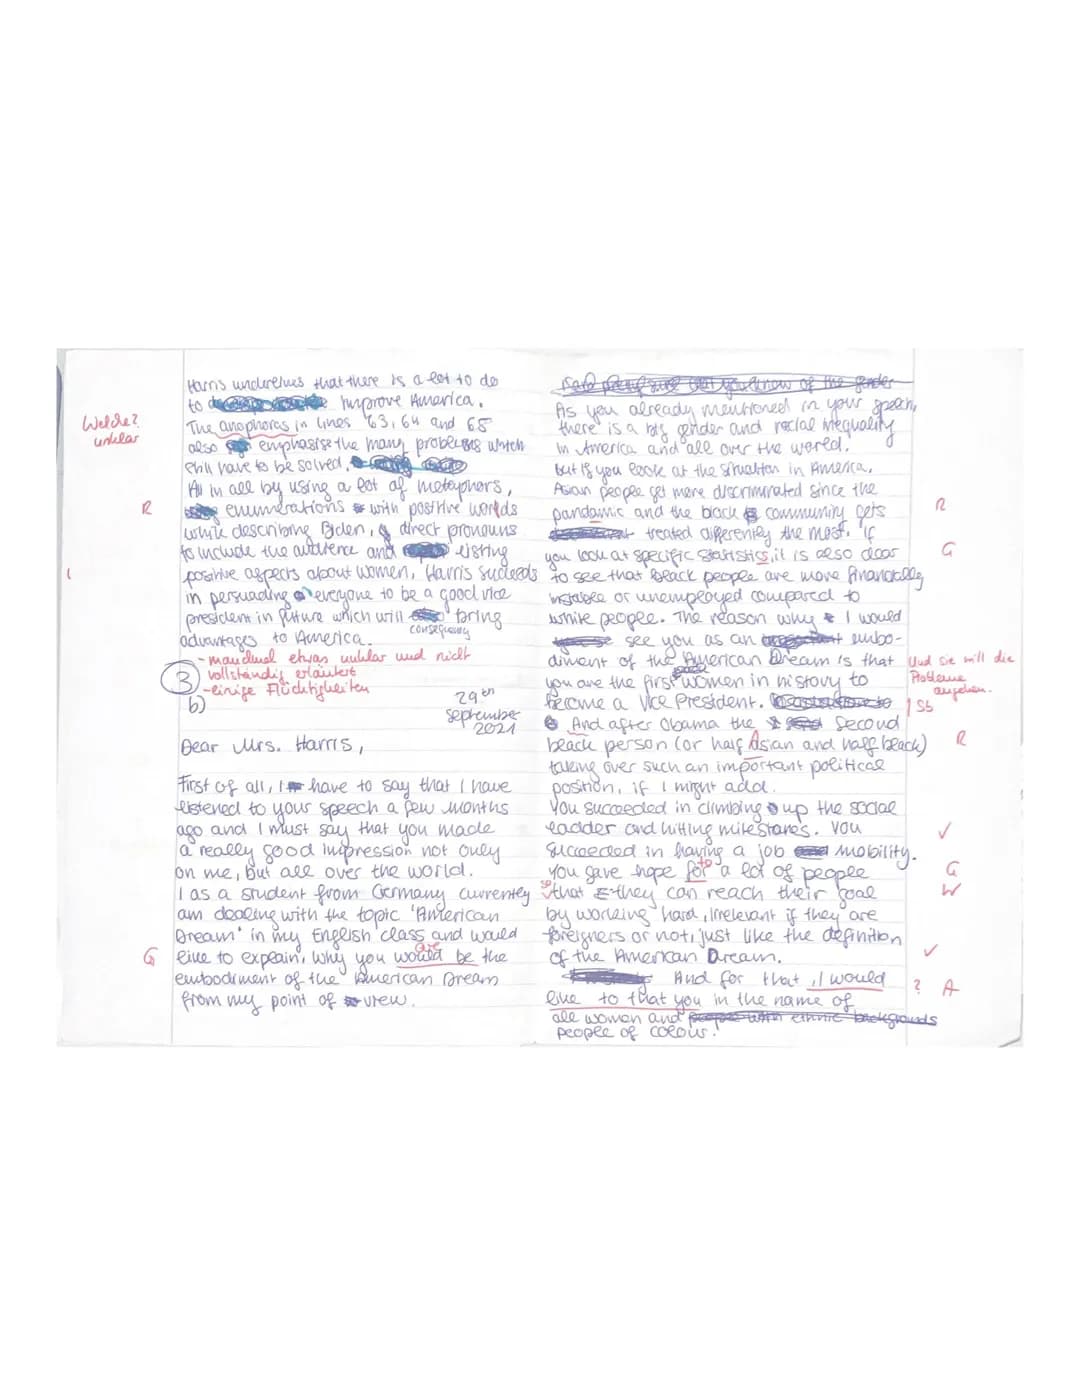 Harris underlines that there is a lot to do
to improve America.
Welche?
unklar
The anaphoras in lines 63, 64 and 68
also emphasise the many problems which
still have to be solved.
All in all by using a lot of metaphors,
R
enumerations with positive words
while describing Biden, direct pronouns
to include the audience and listing
positive aspects about women, Harris sucleeds
in persuading everyone to be a good vice
president in future which will bring
consequently
advantages to America.
- manchmal etwas unklar und nicht
vollständig erläutert
- einige Flüchtigkeiten
3
b)
29th
september
2021
Dear Mrs. Harris,
First of all, I have to say that I have
listened to your speech a few months
ago and I must say that you made
a really good impression not only
on me, but all over the world.
I as a student from Germany currently
am dealing with the topic 'American
Dream' in my English class and would
are
G
like to explain, why you would be the
embodiment of the American Dream
from my point of view.
that you know of the gender
As you already mentioned in your speech,
there is a big gender and racial inequality
in America and all over the world.
but if you look at the situation in America,
Asian people get more discriminated since the
pandamic and the black community gets
R
treated differently the most. If
you look at specific statistics, it is also clear
G
to see that black people are more financially
instable or unemployed compared to
white people. The reason why I would
see you as an embo-
diment of the American Dream is that
Und sie will die
Probleme
angehen.
you are the first women in history to
become a Vice President.
Sb
And after Obama the second
black person (or half Asian and half black)
R
taking over such an important political
position, if I might add.
You succeeded in climbing up the social
ladder and hitting milestones. You
✓
succeeded in having a job mobility.
to
You gave hope for a lot of people
G
so
that they can reach their goal
W
by working hard, irrelevant if they are
foreigners or not, just like the definition
of the American Dream.
✓
And for that, I would
? A
like to that you in the name of
all women and people with ethnic backgrounds
people of colour.